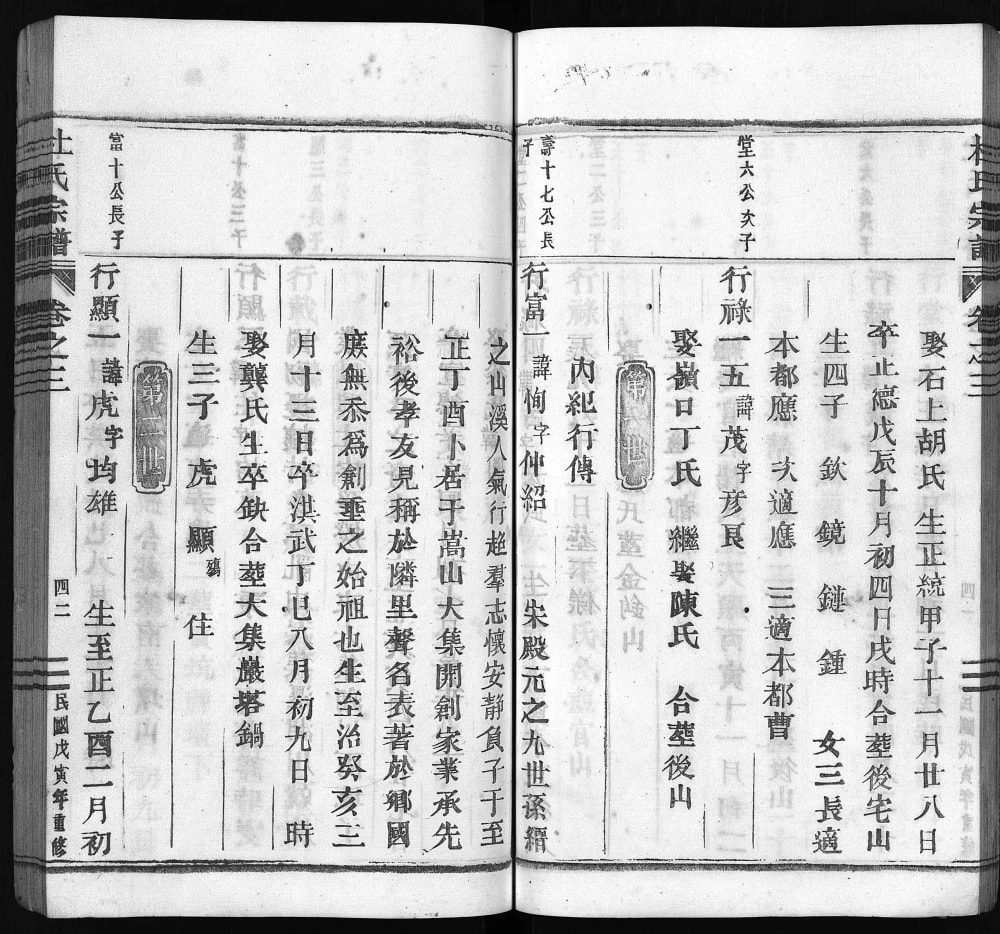 杜氏宗譜 卷之三
娶石上胡氏生正統甲子十一月廿八日
卒正德戊辰十月初四日戌時合塟後宅山
生四子 欽 鏡 鏈 鍾 女三長適
本都應 次適應 三適本都曹
堂六公次子
行祿一五諱茂字彦良
娶嶺口丁氏 繼娶陳氏 合塟後山
第六世
內紀行傳
壽十七公長子
行富一諱恂字仲紹 宋殿元之九世孫縉
之山溪人氣行趍羣志懷安靜負子于至
正丁酉卜居于嵩山大集開創家業承先
裕後孝友見稱於隣里聲名表著於鄉國
庶無忝爲創垂之始祖也生至治癸亥三
月十三日卒洪武丁巳八月初九日 時
娶龔氏生卒缺合塟大集巖塔鍋
生三子虎 顯殤 住
第二世
富十公長子
行顯一諱虎字均雄 生至正乙酉二月初
杜氏宗譜 卷之三 四二 民國戊寅年重修